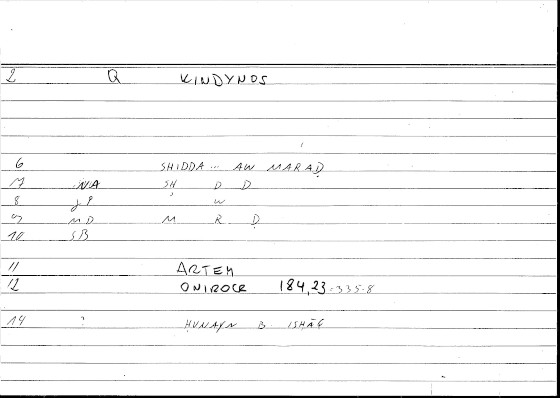 2 Q KINDYNOS
6 SHIDDA... AW MARAḌ
7 NA SH D D
8 JP W
9 MD M R Ḍ
10 SB
11 ARTEM
12 ONIROCR 184,23 - 335-8
14 : ḤUNAYN B. ISḤĀQ